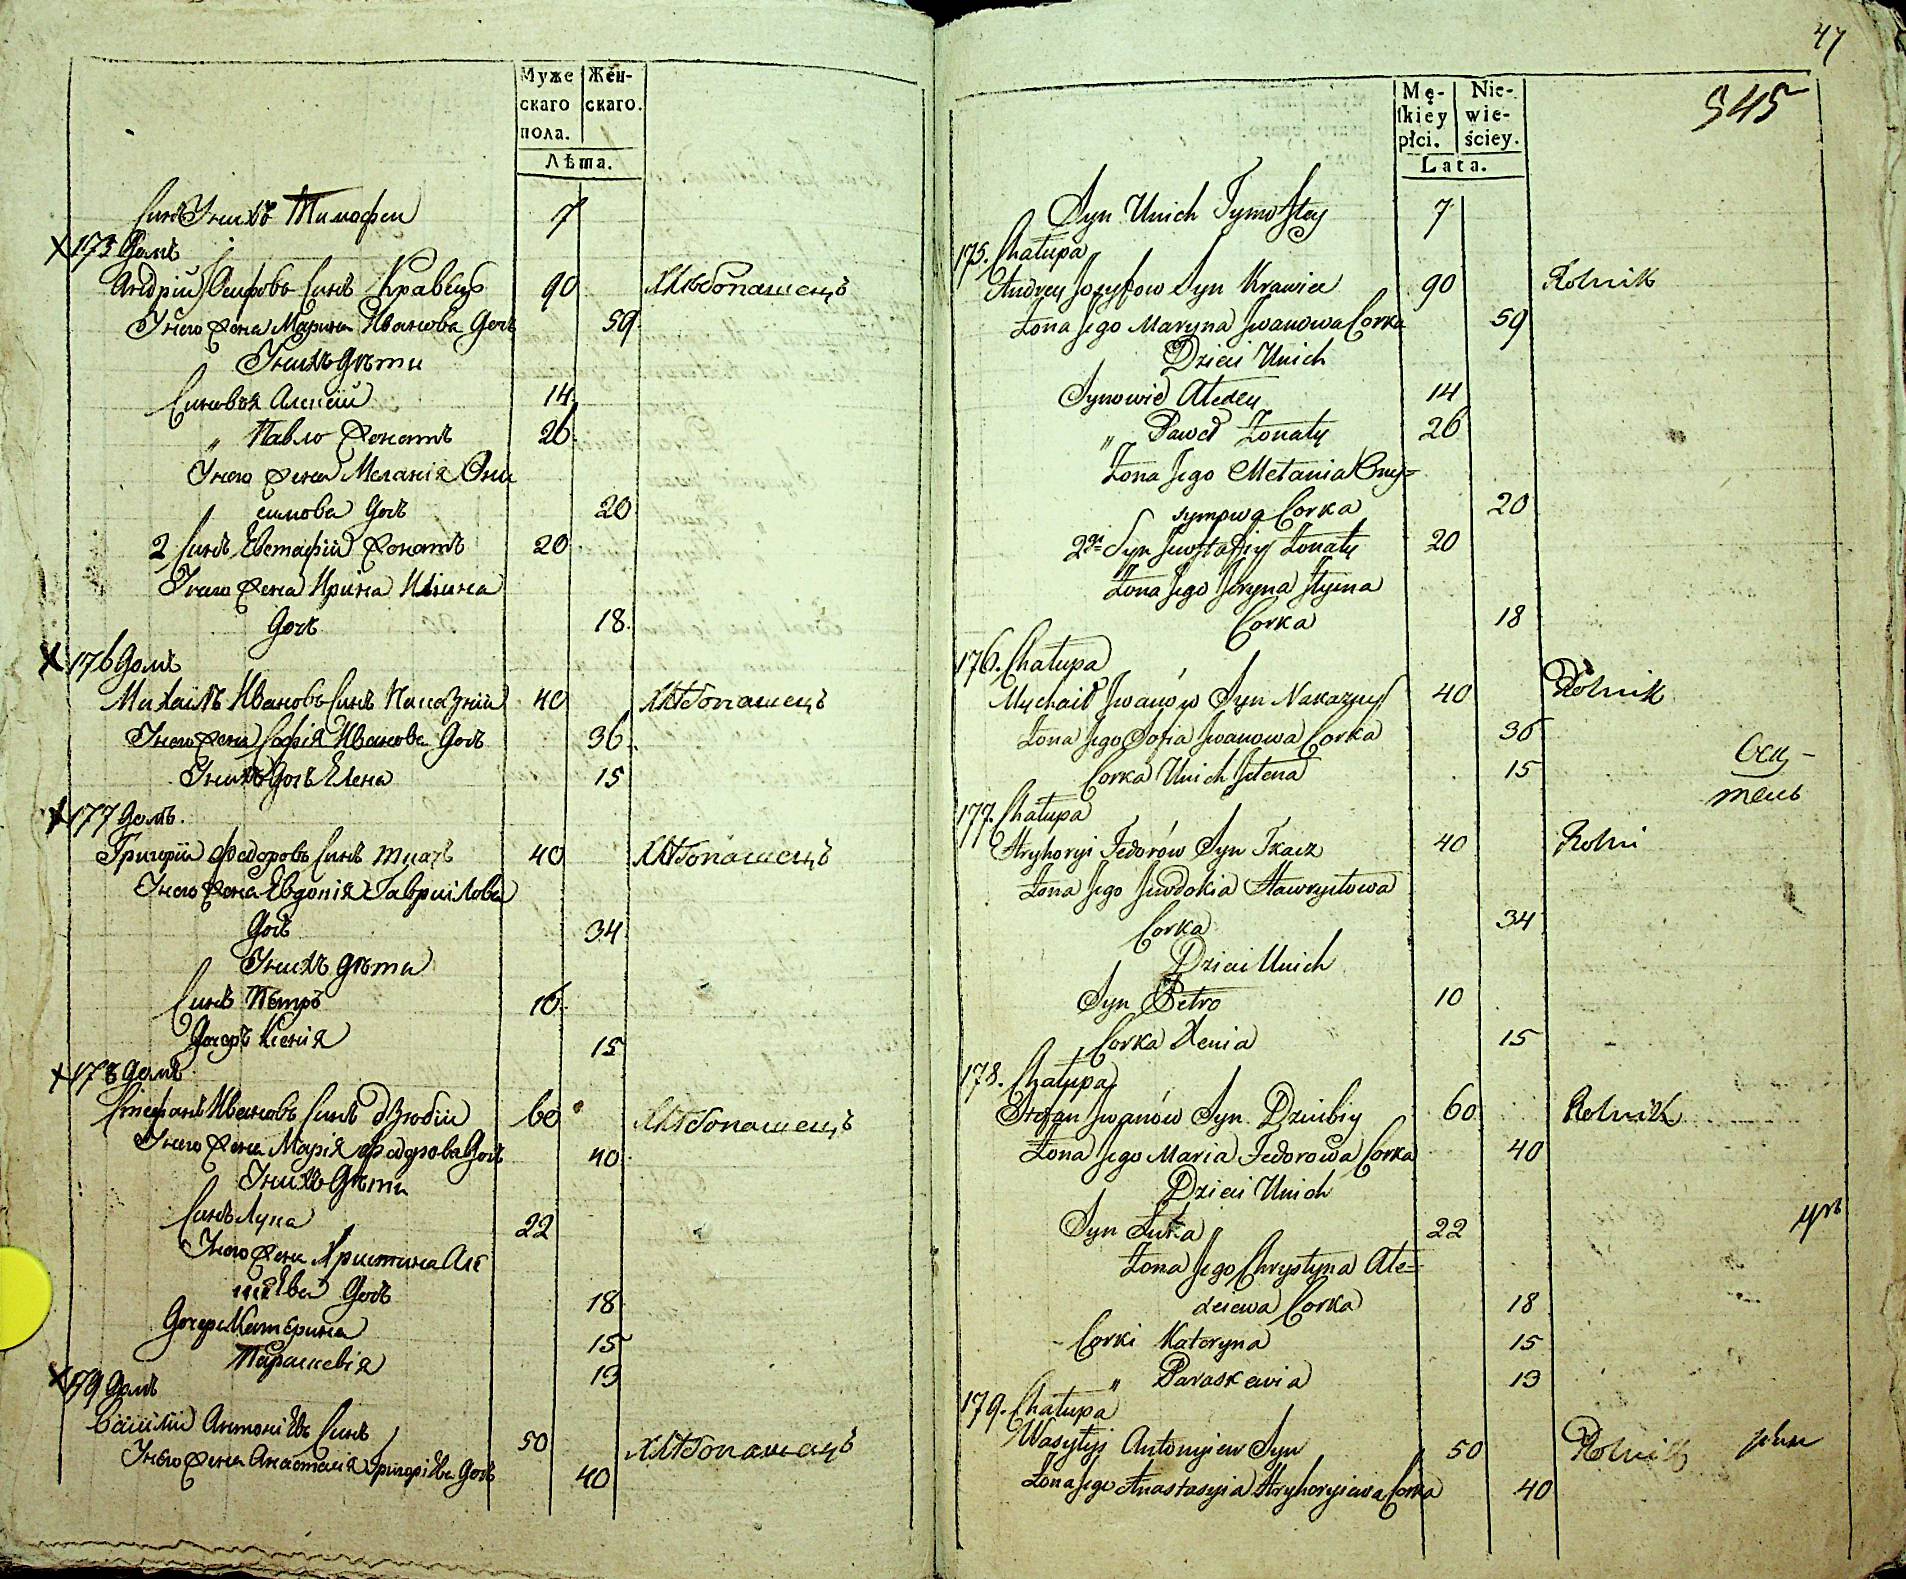 Муже
скаго
пола.
Жен-
скаго.
Лѣта.
Синъ Унихъ Тимофей 7
175 Домъ
Андрій Осифовъ Синъ Кравецъ 90 Хлѣбопашецъ
Унего жена Марина Иванова Дочь 59
Унихъ дѣти
Синовья Алексій 14
„ Павло жонатъ 26
Унего жена Меланія Они
симова Дочь 20
2 Синъ Евстафій жонатъ 20
Унего жена Ирина Илина
Дочь 18
176 Домъ
Михаилъ Ивановъ Синъ Наказній 40 Хлѣбопашецъ
Унего жена Софія Иванова Дочь 36
Унихъ Дочь Елена 15
177 Домъ.
Григорій Федоровъ Синъ Ткачъ 40 Хлѣбопашецъ
Унего жена Евдокія Гавриілова
Дочь 34
Унихъ дѣти
Синъ Петръ 10
Дочерь Ксенія 15
178 Домъ
Стефанъ Ивановъ Синъ Дзюбій 60 Хлѣбопашецъ
Унего жена Марія Федорова Дочь 40
Унихъ Дѣти
Синъ Лука 22
Унего жена Христина Але
ксіева Дочь 18
Дочери Катерина 15
Параскевія 13
179 Домъ
Василій Антоніевъ Синъ 50 Хлѣбопашецъ
Унего жена Анастасія Григоріева Дочь 40
47
345
Mę-
skiey
płci.
Nie-
wie-
ściey.
Lata.
Syn Unich Tymofiey 7
175. Chałupa
Andrey Jozyfow Syn Krawiec 90 Rolnik
Żona Jego Maryna Jwanowa Corka 59
Dzieci Unich
Synowie Alexey 14
„ Paweł Żonaty 26
Żona Jego Melania Ony=
symowa Corka 20
2gi Syn Jewstafiy Żonaty 20
Żona Jego Jryna Jlyina
Corka 18
176. Chałupa
Mychaił Jwanów Syn Nakazny 40 Rolnik
Żona Jego Sofia Jwanowa Corka 36
Corka Unich Jelena 15
177. Chałupa
Hryhoryi Fedorów Syn Tkacz 40 Rolni
Żona Jego Jewdokia Hawryłowa
Corka 34
Dzieci Unich
Syn Petro 10
Corka Xenia 15
178. Chałupa
Stefan Jwanów Syn Dziubiy 60 Rolnik
Żona Jego Maria Fedorowa Corka 40
Dzieci Unich
Syn Łuka 22
Żona Jego Chrystyna Ale=
xiewa Corka 18
Corki Kateryna 15
„ Paraskewia 13
179. Chałupa
Wasylyi Antonyiew Syn 50 Rolnik
Żona Jego Anastasyia Hryhoryiewa Corka 40